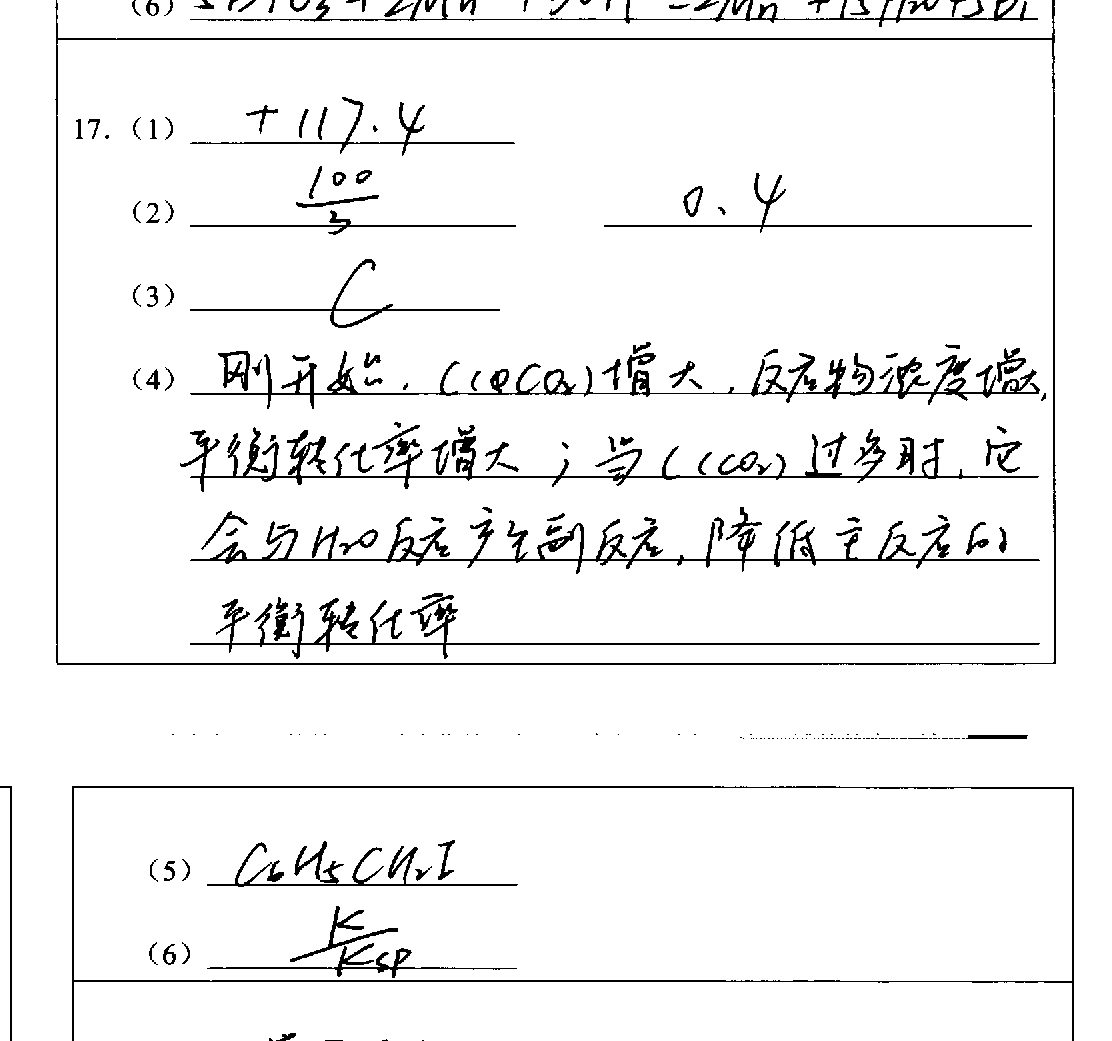 (6)
17.(1) +117.4
(2) 100/3 0.4
(3) C
(4) 刚开始,C(CO₂)增大,反应物浓度增大,
平衡转化率增大;当C(CO₂)过多时,它
会与H₂O反应产生副反应,降低主反应的
平衡转化率
(5) C₆H₅CH₂I
(6) K/Ksp